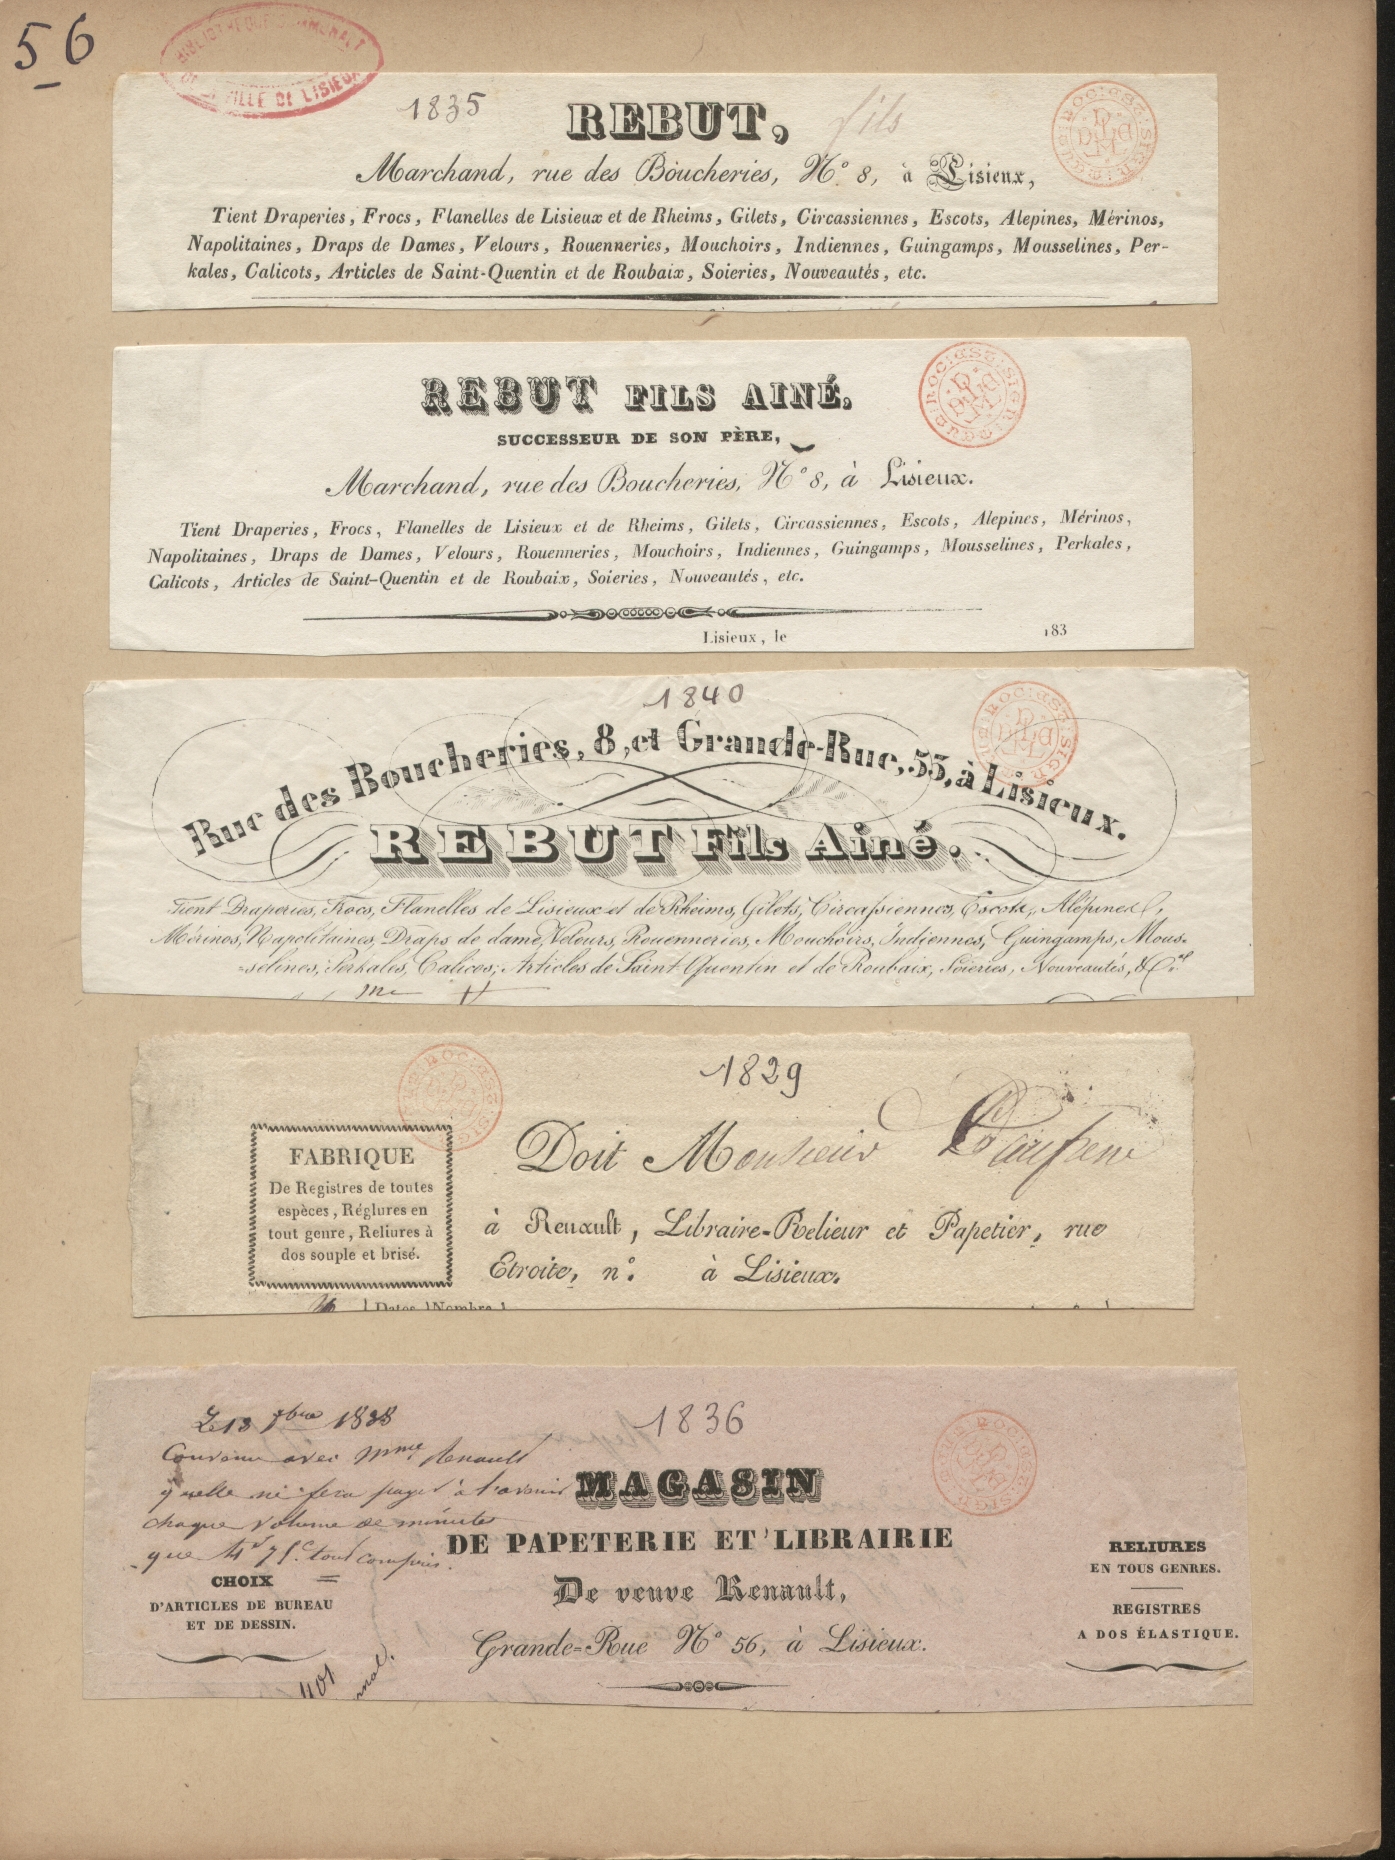 56
BIBLIOTHEQUE COMMUNALE
DE LA VILLE DE LISIEUX
1835
REBUT, fils
Marchand, rue des Boucheries, N.° 8, à Lisieux,
Tient Draperies, Frocs, Flanelles de Lisieux et de Rheims, Gilets, Circassiennes, Escots, Alepines, Mérinos,
Napolitaines, Draps de Dames, Velours, Rouenneries, Mouchoirs, Indiennes, Guingamps, Mousselines, Per-
kales, Calicots, Articles de Saint-Quentin et de Roubaix, Soieries, Nouveautés, etc.
REBUT FILS AINÉ,
SUCCESSEUR DE SON PÈRE,
Marchand, rue des Boucheries, N° 8, à Lisieux.
Tient Draperies, Frocs, Flanelles de Lisieux et de Rheims, Gilets, Circassiennes, Escots, Alepines, Mérinos,
Napolitaines, Draps de Dames, Velours, Rouenneries, Mouchoirs, Indiennes, Guingamps, Mousselines, Perkales,
Calicots, Articles de Saint-Quentin et de Roubaix, Soieries, Nouveautés, etc.
Lisieux, le 183
1840
Rue des Boucheries, 8, et Grande-Rue, 55, à Lisieux.
REBUT Fils Ainé.
Tient Draperies, Frocs, Flanelles de Lisieux et de Rheims, Gilets, Circassiennes, Escots, Alépines,
Mérinos, Napolitaines, Draps de dame, Velours, Rouenneries, Mouchoirs, Indiennes, Guingamps, Mous-
-selines, Perkales, Calicos, Articles de Saint-Quentin et de Roubaix, Soieries, Nouveautés, &c.
1829
FABRIQUE
De Registres de toutes
espèces, Réglures en
tout genre, Reliures à
dos souple et brisé.
Doit Monsieur
à Renault, Libraire-Relieur et Papetier, rue
Etroite, n.° à Lisieux.
Dates Nombre
1836
Le 13 7bre 1838
Convenu avec Mme Renault
quelle ne fera payer à l'avenir
chaque volume de minutes
que 4f 75c tout compris.
MAGASIN
DE PAPETERIE ET LIBRAIRIE
De veuve Renault,
Grande-Rue N° 56, à Lisieux.
CHOIX
D'ARTICLES DE BUREAU
ET DE DESSIN.
RELIURES
EN TOUS GENRES.
REGISTRES
A DOS ÉLASTIQUE.
401